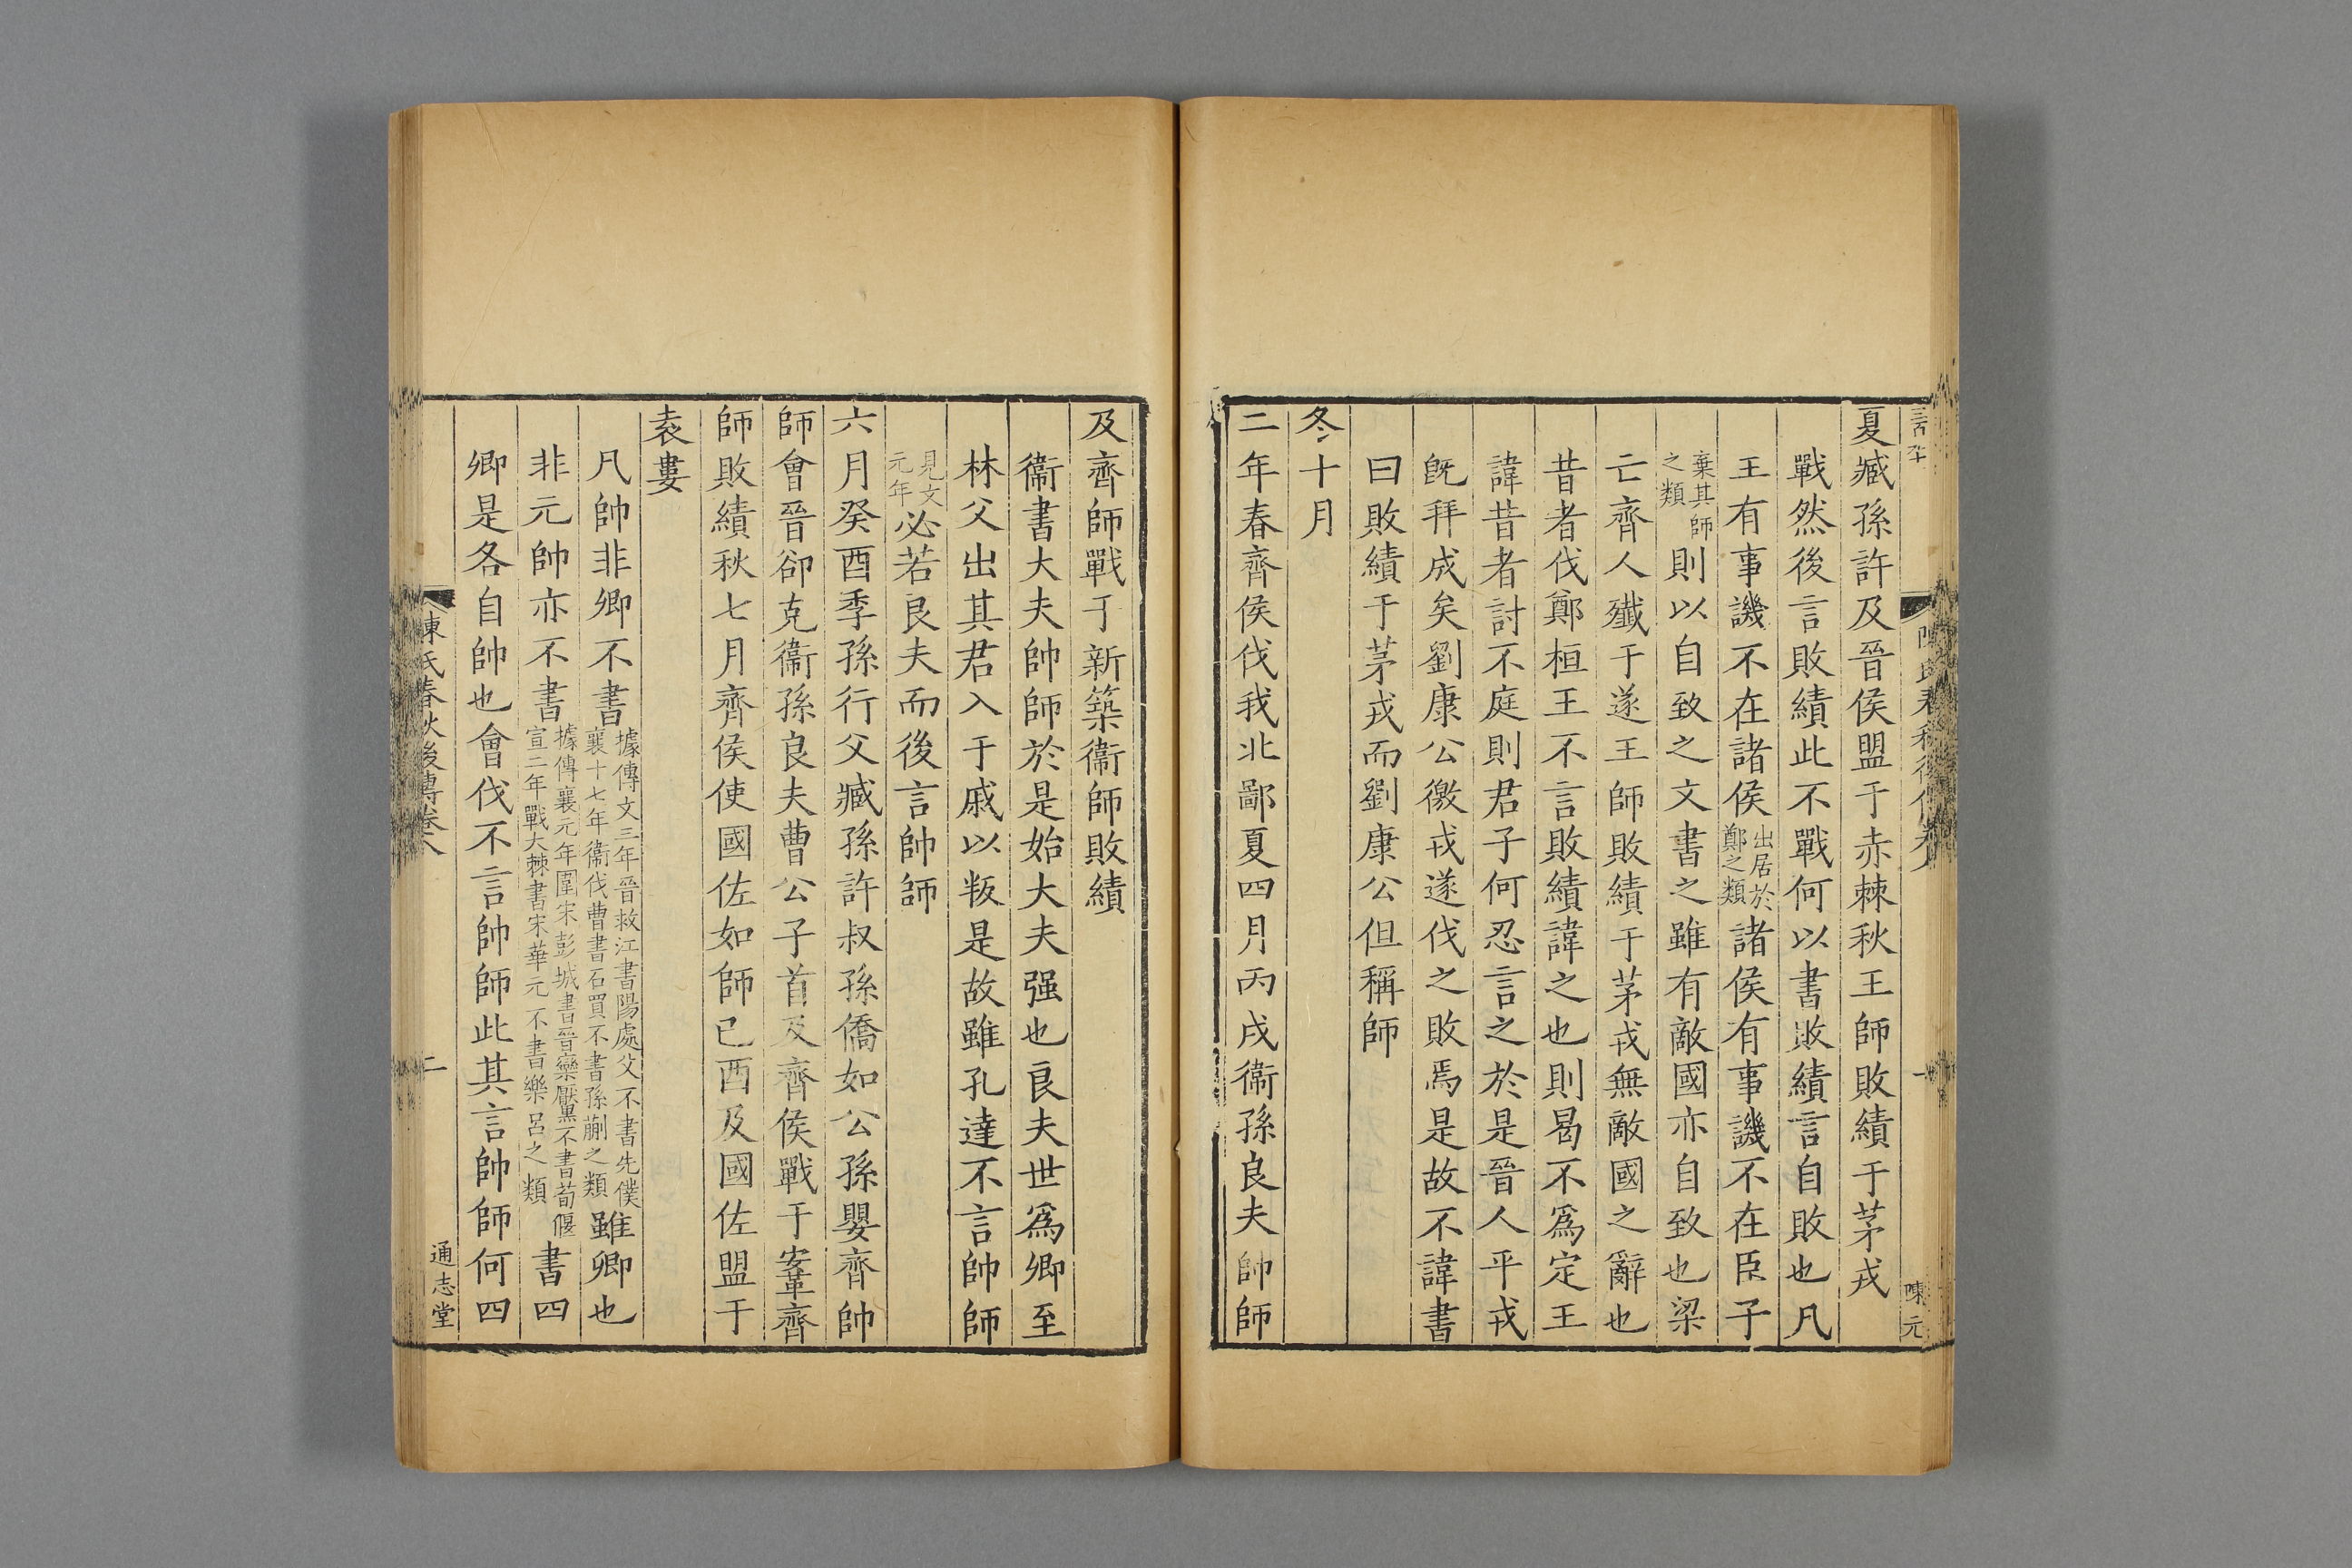 夏臧孫許及晉侯盟于赤棘秋王師敗績于茅戎
戰然後言敗績此不戰何以書敗績言自敗也凡
王有事譏不在諸侯出居於鄭之類諸侯有事譏不在臣子
棄其師之類則以自致之文書之雖有敵國亦自致也梁
亡齊人殲于遂王師敗績于茅戎無敵國之辭也
昔者伐鄭桓王不言敗績諱之也則曷不為定王
諱昔者討不庭則君子何忍言之於是晉人平戎
既拜成矣劉康公徼戎遂伐之敗焉是故不諱書
曰敗績于茅戎而劉康公但稱師
冬十月
二年春齊侯伐我北鄙夏四月丙戌衞孫良夫帥師
及齊師戰于新築衞師敗績
衞書大夫帥師於是始大夫强也良夫世為卿至
林父出其君入于戚以叛是故雖孔達不言帥師
見文元年必若良夫而後言帥師
六月癸酉季孫行父臧孫許叔孫僑如公孫嬰齊帥
師會晉郤克衞孫良夫曹公子首及齊侯戰于鞌齊
師敗績秋七月齊侯使國佐如師已酉及國佐盟于
袁婁
凡帥非卿不書據傳文三年晉救江書陽處父不書先僕襄十七年衞伐曹書石買不書孫蒯之類雖卿也
非元帥亦不書據傳襄元年圍宋彭城書晉欒黶不書荀偃宣二年戰大棘書宋華元不書樂呂之類書四
卿是各自帥也會伐不言帥師此其言帥師何四
陳氏春秋後傳卷八
二
通志堂